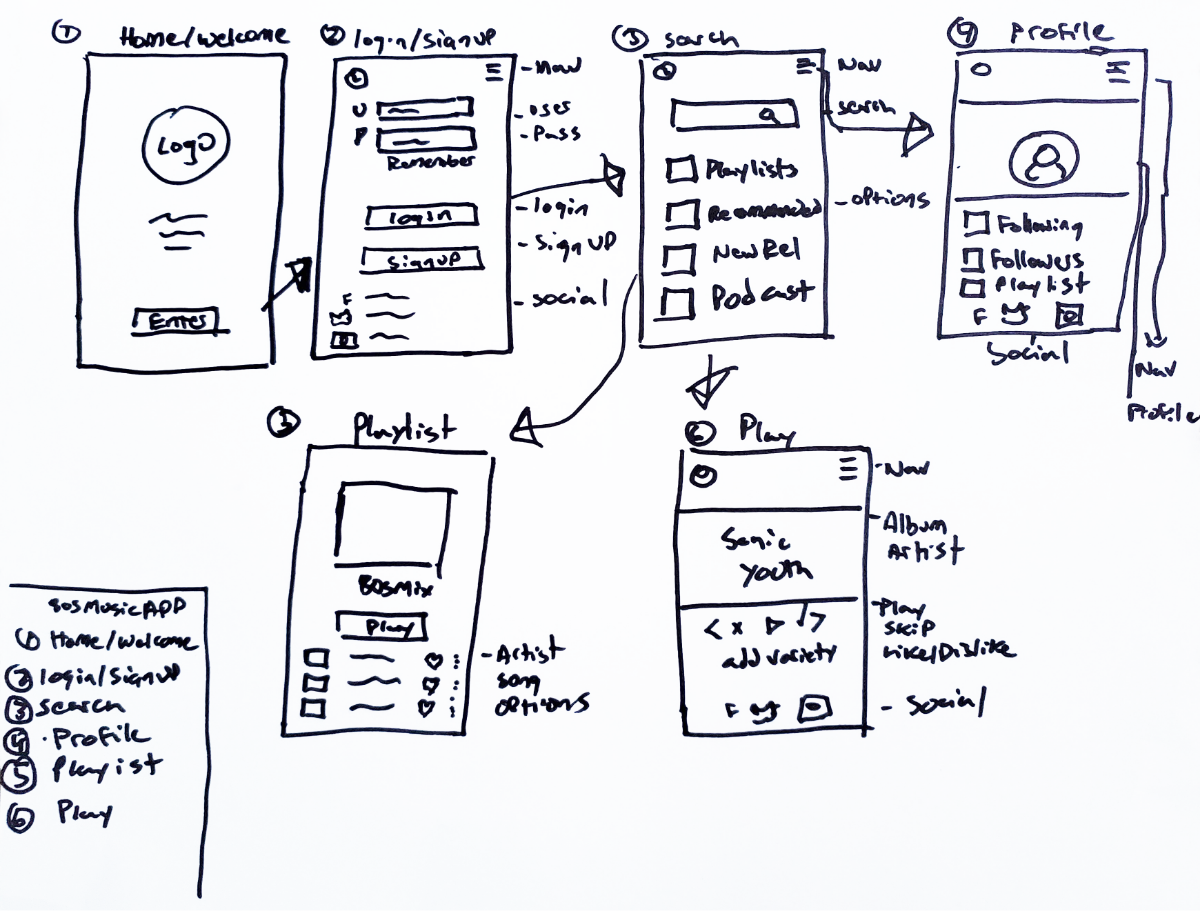 ① Home/welcome
LOGO
Enter
② login/signup
U
P
Remember
login
signup
F
- Nav
- User
- Pass
- login
- Sign UP
- social
③ search
Playlists
Recommended
New Rel
Podcast
Nav
search
- options
④ Profile
Following
Followers
Playlist
F
Social
Nav
Profile
Playlist
80s Mix
Play
- Artist
song
options
⑥ Play
Sonic
Youth
< x ▷ >
add variety
F
- Nav
- Album
Artist
- Play
skip
Like/Dislike
- Social
80s Music APP
① Home/welcome
② login/signup
③ search
④ Profile
⑤ Playlist
⑥ Play